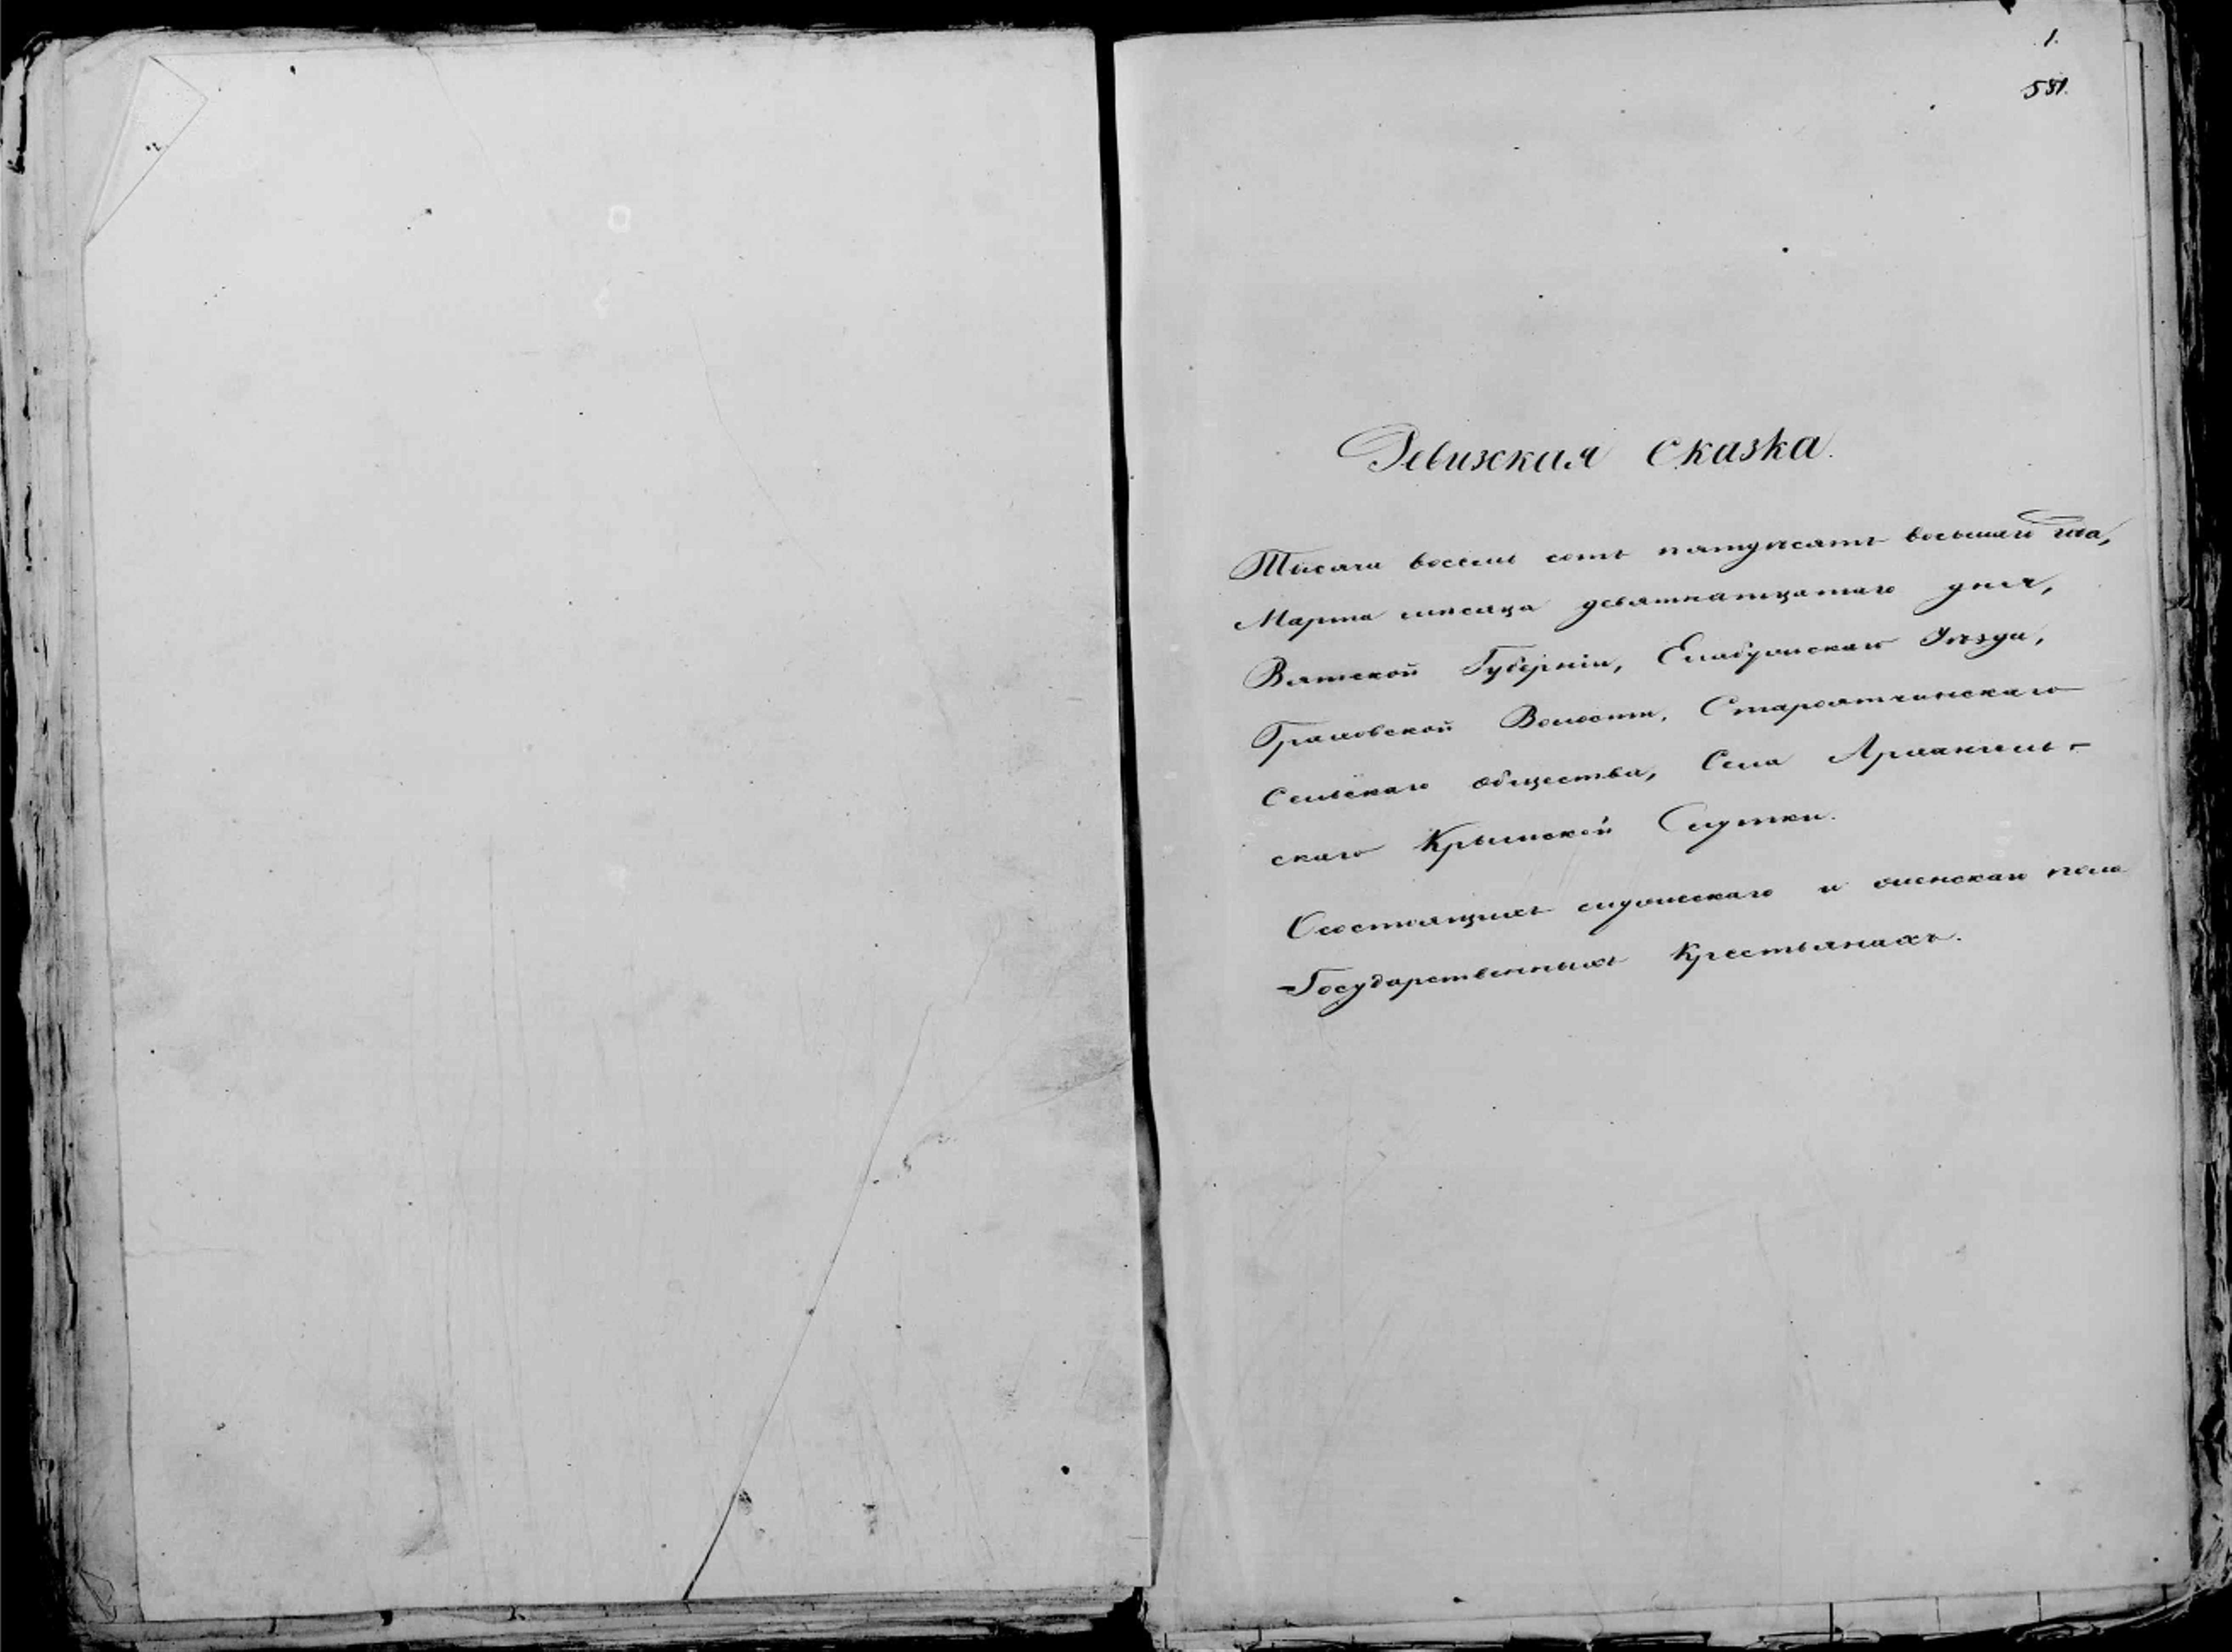 1.
581.
Ревизская Сказка.
Тысяча восемь сотъ пятдесятъ восьмаго года,
Марта мѣсяца девятнатцатаго дня,
Вятской Губерніи, Елабужскаго Уѣзда,
Граховской Волости, Староятчинскаго
Сельскаго общества, Села Архангель-
скаго Крымской Слутки.
О состоящихъ мужескаго и женскаго пола
Государственныхъ Крестьянахъ.